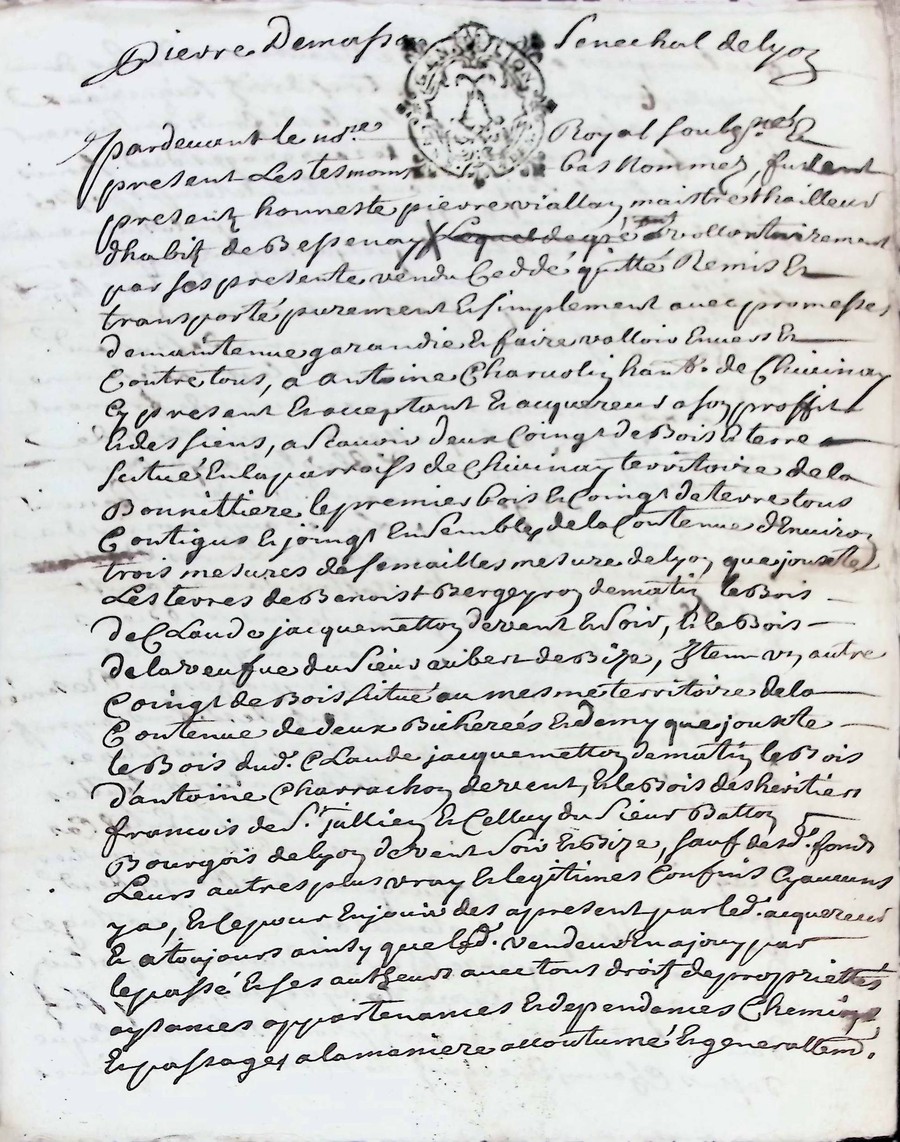 Pierre Demasso Senechal de lyon
pardevant le no.re Royal soubs.né &
present Les tesmoins bas Nommez, furent
present honneste pierre viallon maistre thailleur
dhabit de Bessenay Lequel de gré et vollontairement
par ses presente vendu Ceddé quitté Remis Et
transporté purement Et simplement avec promesses
de maintenue garandie Et faire valloir Envers Et
Contre tous, a antoine Charvolin hant. de Chivinay
Cy present Et acceptant Et acquereur a son proffit
Et des siens, a scavoir deux Coingt de Bois Et terre
situé En la parroiss de Chivinay territoire de la
Bonnittiere le premier bois Et Coingt de terre tous
Contigus Et joingt Ensembles de la Contenue d'Environ
trois mesures de semailles mesure de lyon que jouxte
Les terres de Benoist Bergeyron de matin le Bois
de CLaude jacquemetton de vent Et soir, Et le Bois
de la veufve du sieur aribert de Bize, Item un autre
Coingt de Bois situé au mesme territoire de la
Contenue de deux Bicherées Et demy que jouxte
le Bois dud. CLaude jacquemetton de matin le Bois
d'antoine Charrachon de vent, Et le Bois des heritiers
francois de St. Jullien Et Celluy du sieur Batton
Bourgois de lyon de vent soir Et Bize, sauf desd. fonds
Leurs autres plus vray Et legitimes Confins sy aucuns
y a, Et ce pour En jouir des a present par led. acquereur
Et a toujours ainsy que led. vendeur En a jouy par
le passé Et ses autheurs avec tous droits de propriettés
aysances appartenances Et dependances Chemins
Et passages a la maniere accoutumé Et generallem.